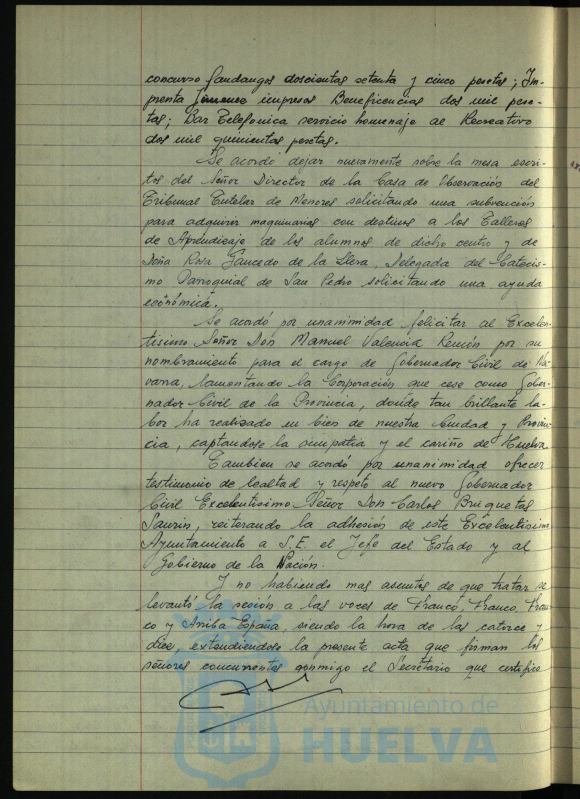 concurso fandangos doscientas setenta y cinco pesetas; Im-
prenta Jimenez impresos Beneficencias dos mil pese-
tas; Bar Telefonica servicio homenaje al Recreativo
dos mil quinientas pesetas.
Se acordó dejar nuevamente sobre la mesa escri-
tos del Señor Director de la Casa de Observación del
Tribunal Tutelar de Menores solicitando una subvención
para adquirir maquinarias con destinos a los Talleres
de Aprendizaje de los alumnos de dicho centro y de
Doña Rosa Saucedo de la Llera, Delegada del Catecis-
mo Parroquial de San Pedro solicitando una ayuda
económica.
Se acordó por unanimidad felicitar al Excelen-
tisimo Señor Don Manuel Valencia Remón por su
nombramiento para el cargo de Gobernador Civil de Na-
varra, lamentando la Corporación que cese como Gober-
nador Civil de la Provincia, donde tan brillante la-
bor ha realizado en bien de nuestra Ciudad y Provin-
cia, captandose la simpatia y el cariño de Huelva.
Tambien se acordó por unanimidad ofrecer
testimonio de lealtad y respeto al nuevo Gobernador
Civil Excelentisimo Señor Don Carlos Briquetas
Saurin, reiterando la adhesión de este Excelentisimo
Ayuntamiento a S.E. el Jefe del Estado y al
Gobierno de la Nación.
Y no habiendo mas asuntos de que tratar se
levantó la sesión a las voces de Franco, Franco, Fran-
co y Arriba España, siendo la hora de las catorce y
diez, extendiendose la presente acta que firman los
señores concurrentes conmigo el Secretario que certifico
Ayuntamiento de
HUELVA